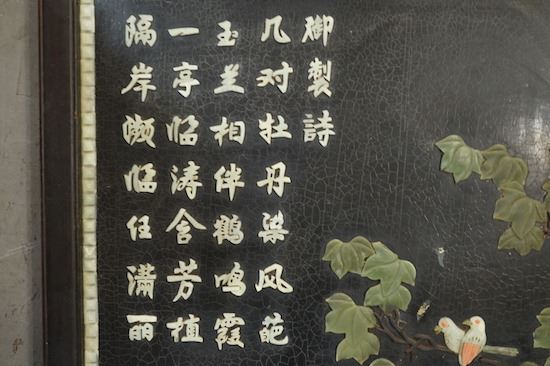 御製詩
几对牡丹染风葩
玉兰相伴鹤鸣霞
一亭临涛含芳植
隔岸濒临任满丽